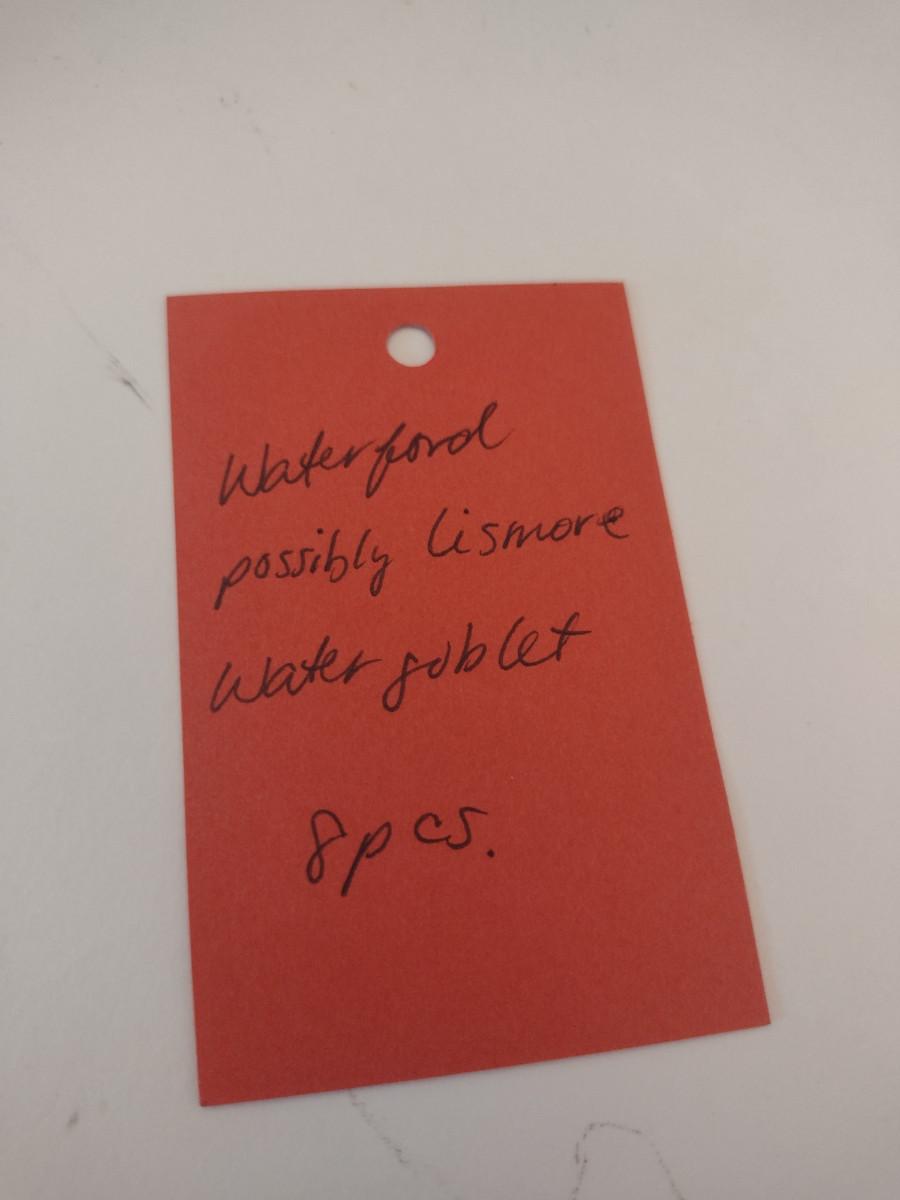 Waterford
possibly Lismore
Water goblet
8pcs.